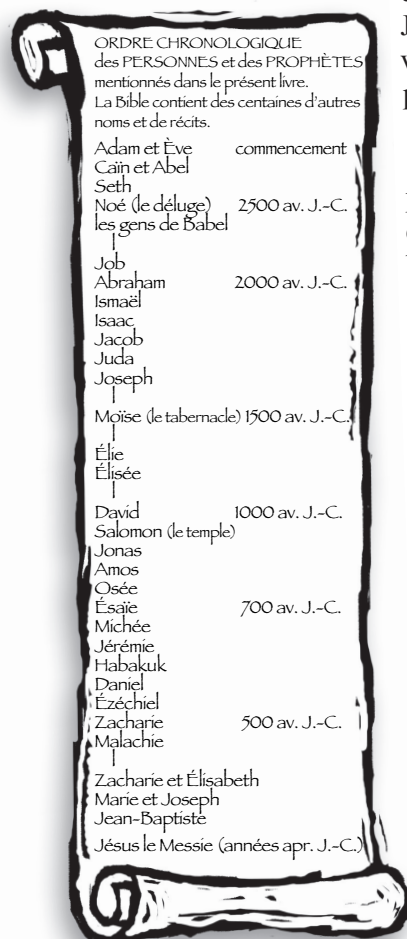 ORDRE CHRONOLOGIQUE
des PERSONNES et des PROPHÈTES
mentionnés dans le présent livre.
La Bible contient des centaines d'autres
noms et de récits.
Adam et Ève commencement
Caïn et Abel
Seth
Noé (le déluge) 2500 av. J.-C.
les gens de Babel
Job
Abraham 2000 av. J.-C.
Ismaël
Isaac
Jacob
Juda
Joseph
Moïse (le tabernacle) 1500 av. J.-C.
Élie
Élisée
David 1000 av. J.-C.
Salomon (le temple)
Jonas
Amos
Osée
Ésaïe 700 av. J.-C.
Michée
Jérémie
Habakuk
Daniel
Ézéchiel
Zacharie 500 av. J.-C.
Malachie
Zacharie et Élisabeth
Marie et Joseph
Jean-Baptiste
Jésus le Messie (années apr. J.-C.)